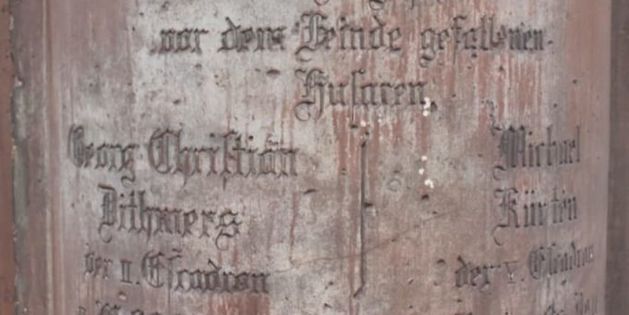 vor dem Feinde gefallenen
Husaren
Georg Christian
Dithmers
der II. Escadron
Michael
Kürten
der V. Escadron